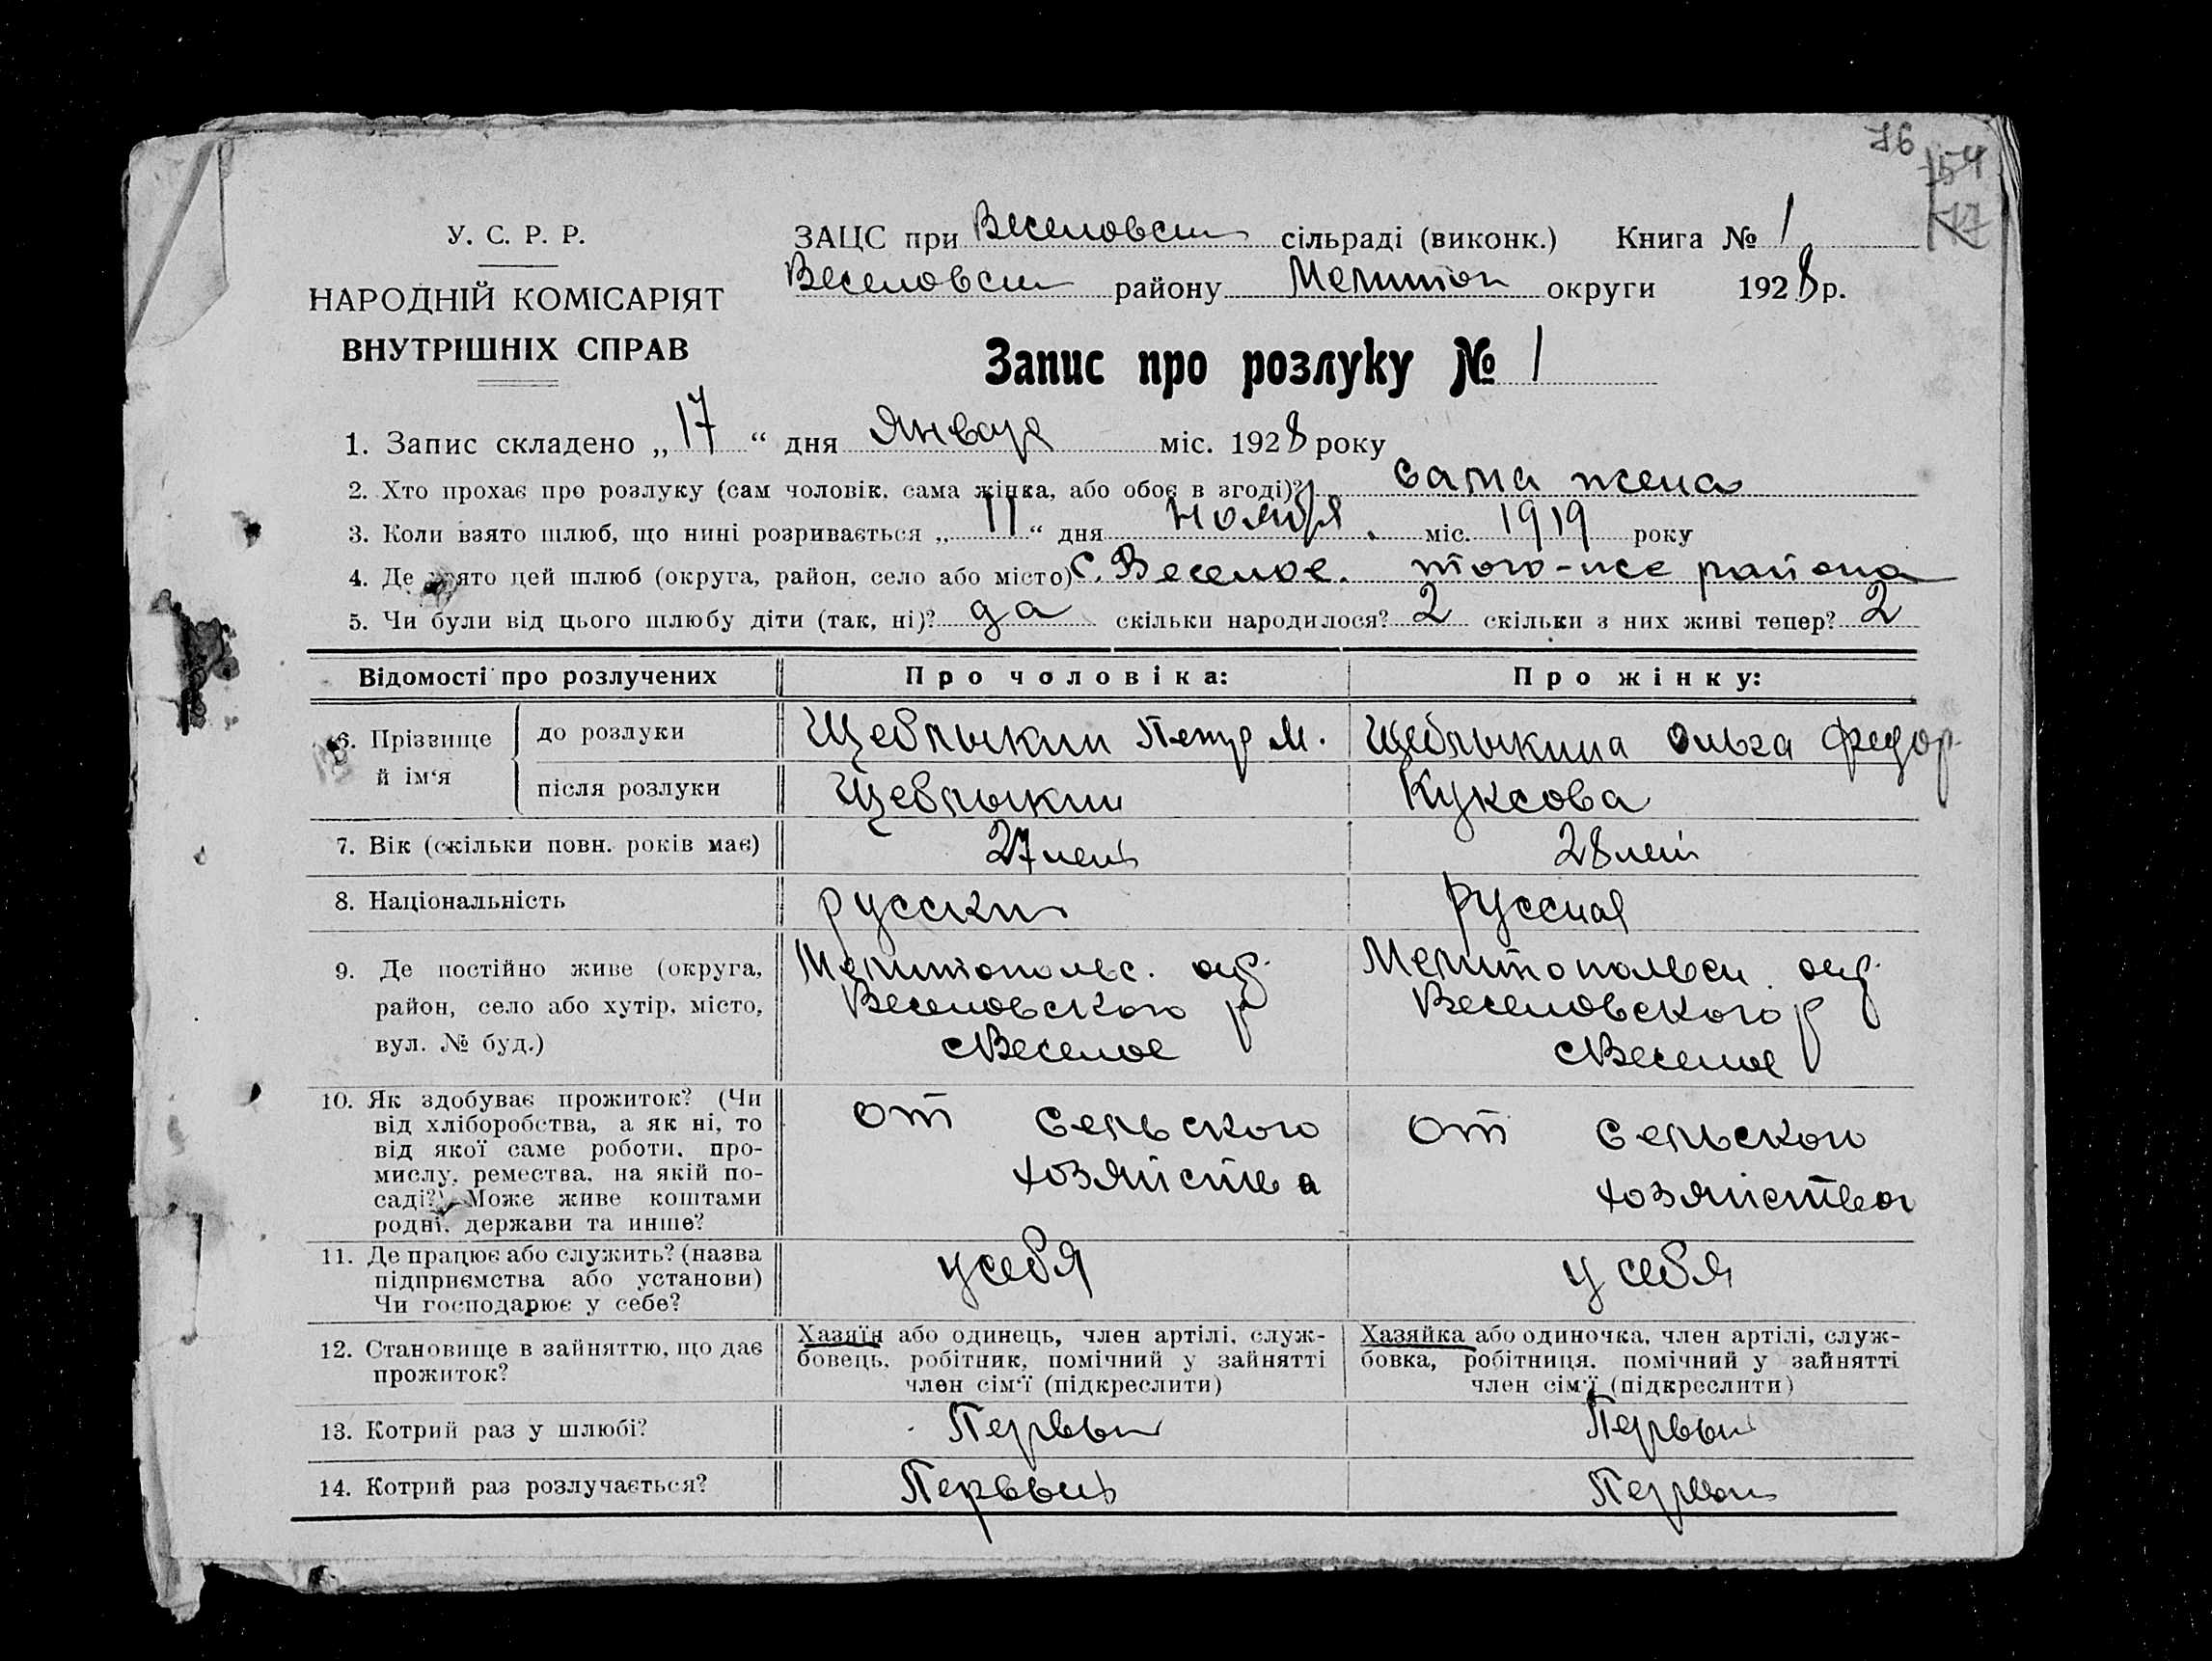 76
54
17
У. С. Р. Р.
НАРОДНІЙ КОМІСАРІЯТ
ВНУТРІШНІХ СПРАВ
ЗАЦС при Веселовск сільраді (виконк.) Книга № 1
Веселовск району Мелитоп округи 1928 р.
Запис про розлуку № 1
1. Запис складено „ 17 “ дня Января міс. 1928 року
2. Хто прохає про розлуку (сам чоловік, сама жінка, або обоє в згоді)? сама жена
3. Коли взято шлюб, що нині розривається „ 11 “ дня Ноября міс. 1919 року
4. Де взято цей шлюб (округа, район, село або місто) с. Веселое. того-же района
5. Чи були від цього шлюбу діти (так, ні)? да скільки народилося? 2 скільки з них живі тепер? 2
Відомості про розлучених Про чоловіка: Про жінку:
6. Прізвище й ім‘я до розлуки Щеблыкин Петр М. Щеблыкина Ольга Федор.
після розлуки Щеблыкин Куксова
7. Вік (скільки повн. років має) 27 лет 28 лет
8. Національність русский русская
9. Де постійно живе (округа, Мелитопольс. окр. Мелитопольск окр.
район, село або хутір, місто, Веселовского р Веселовского р
вул. № буд.) с Веселое с Веселое
10. Як здобуває прожиток? (Чи
від хліборобства, а як ні, то от сельского от сельского
від якої саме роботи, про-
мислу, ремества, на якій по- хозяйства хозяйства
саді?) Може живе коштами
родні, держави та инше?
11. Де працює або служить? (назва у себя у себя
підприємства або установи)
Чи господарює у себе?
12. Становище в зайняттю, що дає
прожиток?
Хазяїн або одинець, член артілі, служ-
бовець, робітник, помічний у зайнятті
член сім‘ї (підкреслити)
Хазяйка або одиночка, член артілі, служ-
бовка, робітниця, помічний у зайнятті
член сім‘ї (підкреслити)
13. Котрий раз у шлюбі? Первый Первый
14. Котрий раз розлучається? Первый Первый